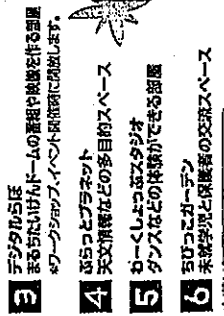 3 デジタルらぼ
まるちたいけんドームの番組や映像を作る部屋
*ワークショップ、イベント開催時に開放します。
4 ぷらっとプラネット
天文情報などの多目的スペース
5 わーくしょっぷスタジオ
ダンスなどの体験ができる部屋
6 ちびっこガーデン
未就学児と保護者の交流スペース